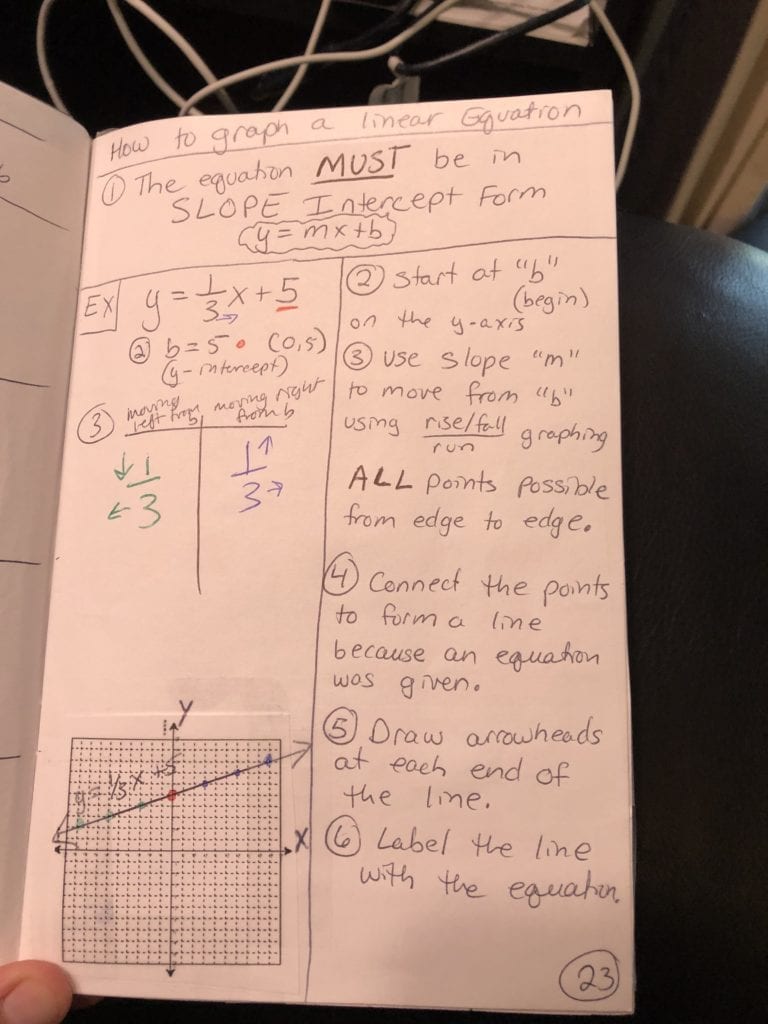 How to graph a linear Equation
① The equation MUST be in
SLOPE Intercept Form
y = mx + b
EX y = 1/3 x + 5
② b = 5 • (0,5)
(y-intercept)
③ moving left from b | moving right from b
↓1 | 1↑
←3 | 3→
② Start at "b"
(begin)
on the y-axis
③ Use slope "m"
to move from "b"
using rise/fall / run graphing
ALL points possible
from edge to edge.
④ Connect the points
to form a line
because an equation
was given.
⑤ Draw arrowheads
at each end of
the line.
⑥ Label the line
with the equation.
y
y = 1/3 x + 5
x
23